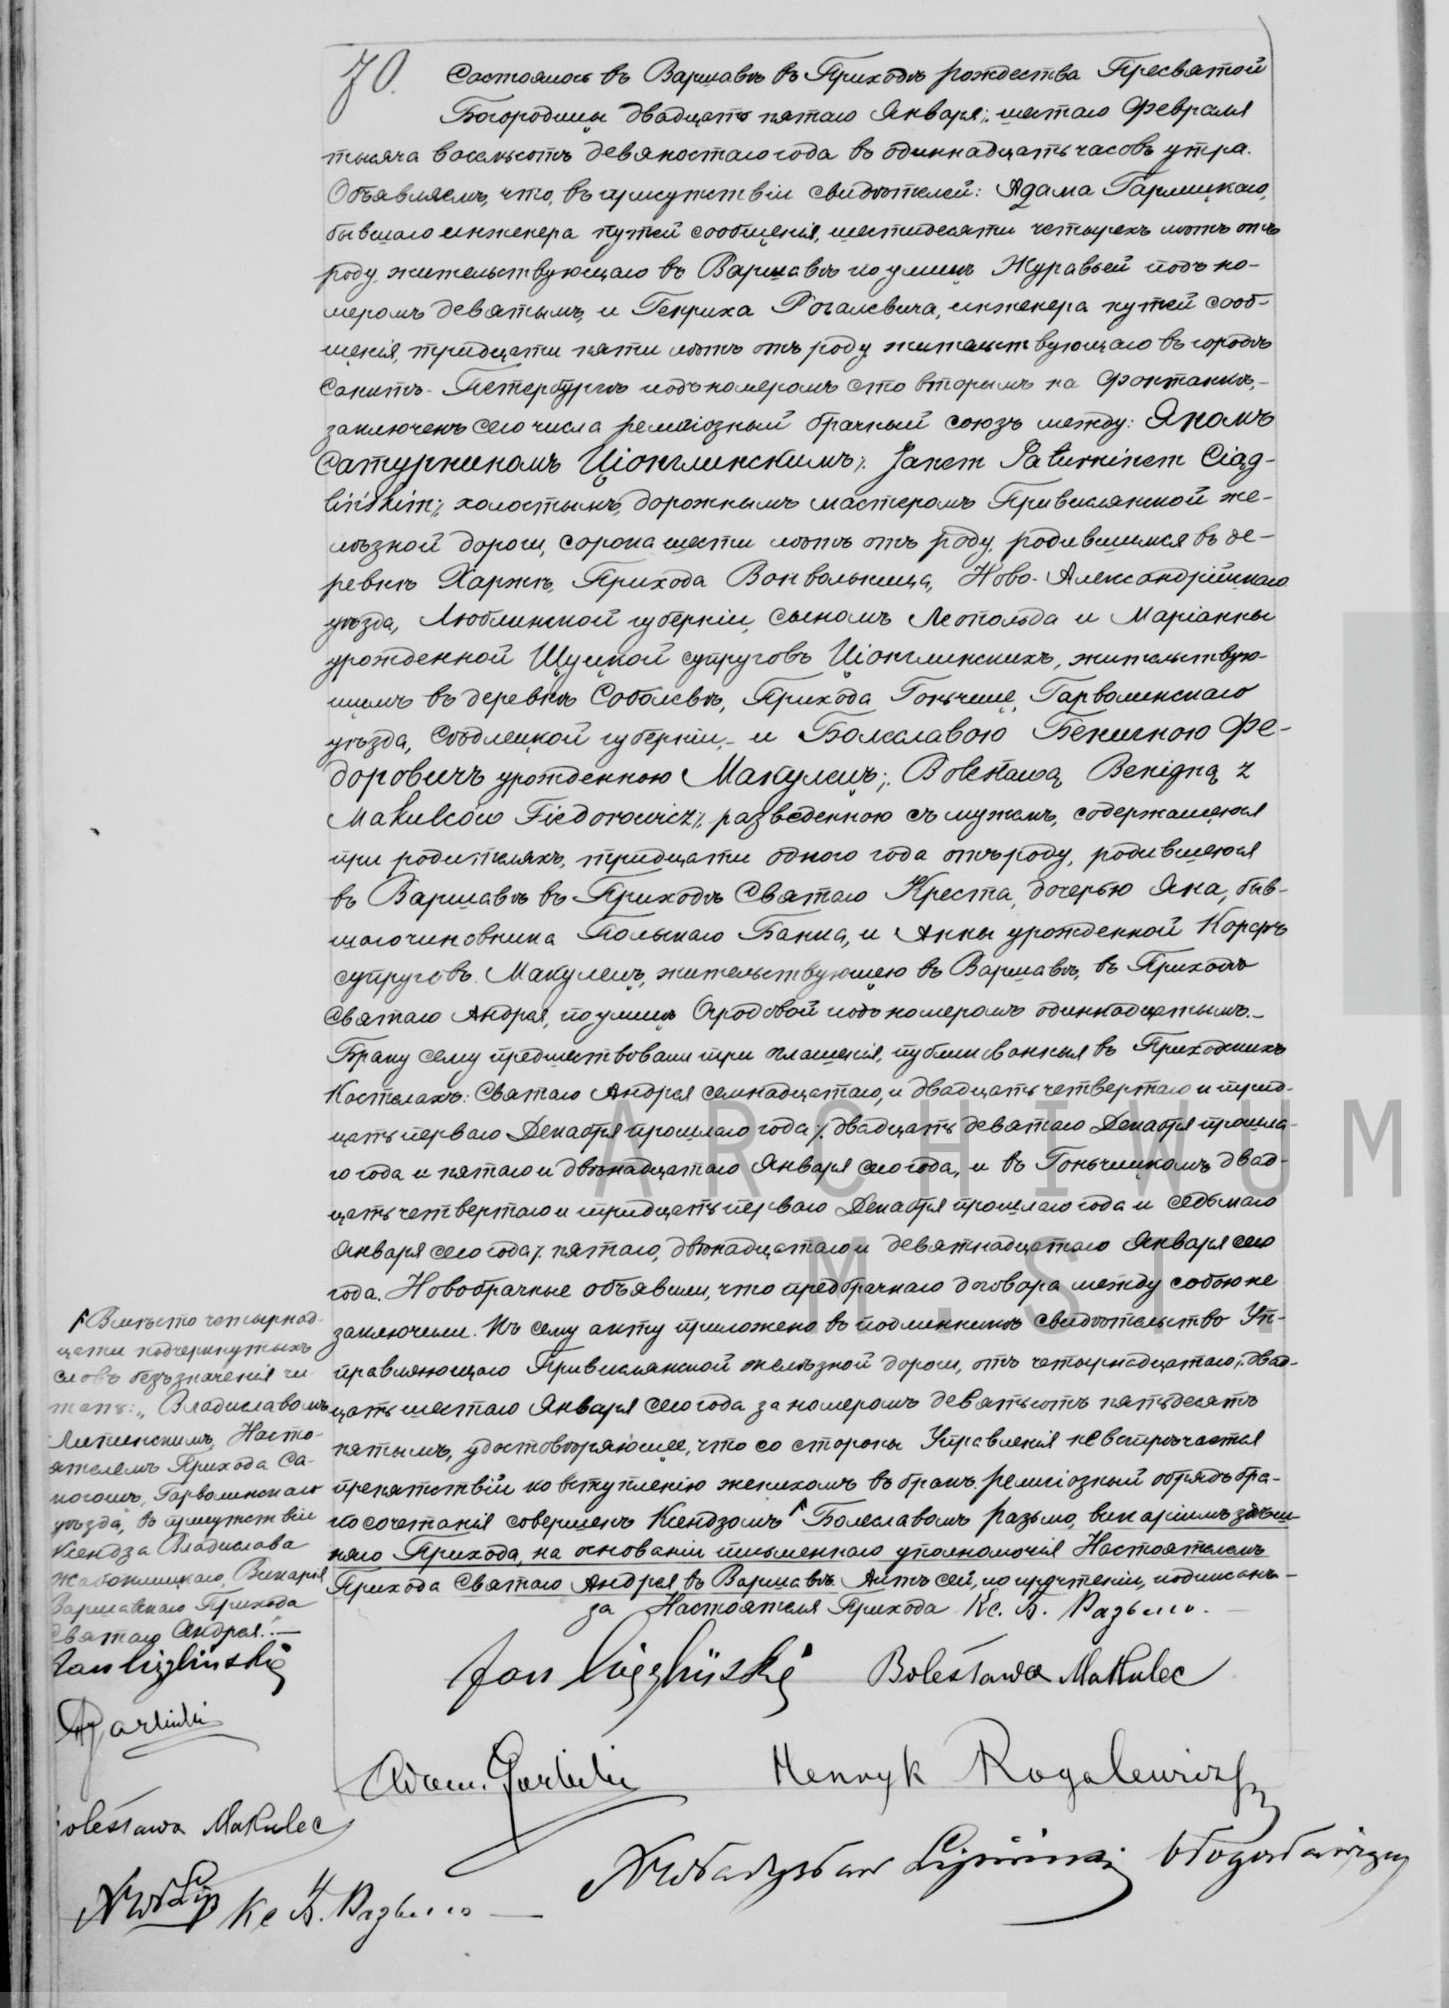 70. Состоялось въ Варшавѣ въ Приходѣ рождества Пресвятой
Богородицы двадцать пятаго Января /: шестаго Февраля
тысяча восемьсотъ девяностаго года въ одиннадцать часовъ утра.
Объявляемъ, что, въ присутствіи свидѣтелей: Адама Гарлицкаго,
бывшаго инженера путей сообщенія, шестидесяти четырехъ лѣтъ отъ
роду, жительствующаго въ Варшавѣ по улицѣ Журавьей подъ но-
меромъ девятымъ, и Генриха Рогалевича, инженера путей сооб-
щенія, тридцати пяти лѣтъ отъ роду, жительствующаго въ городѣ
Санктъ-Петербургѣ подъ номеромъ сто вторымъ на Фонтанкѣ,-
заключенъ сего числа религіозный брачный союзъ между: Яномъ
Сатурниномъ Ціонглинскимъ /: Janem Saturninem Ciąg-
lińskim :/ холостымъ, дорожнымъ мастеромъ Привислянской же-
лѣзной дороги, сорока шести лѣтъ отъ роду, родившимся въ де-
ревнѣ Харжъ, Прихода Вонвольница, Ново-Александрійскаго
уѣзда, Люблинской губерніи, сыномъ Леопольда и Маріанны
урожденной Щуцкой супруговъ Ціонглинскихъ, жительствую-
щимъ въ деревнѣ Соболевѣ, Прихода Гоньчице, Гарволинскаго
уѣзда, Сѣдлецкой губерніи,- и Болеславою Бенигною Фе-
доровичъ урожденною Макулецъ /: Bolesławą Benigną z
Makulców Fiedorowicz :/ разведенною съ мужемъ, содержащеюся
при родителяхъ, тридцати одного года отъ роду, родившеюся
въ Варшавѣ въ Приходѣ Святаго Креста, дочерью Яна, быв-
шаго чиновника Польскаго Банка, и Анны урожденной Корфъ
супруговъ Макулецъ, жительствующею въ Варшавѣ, въ Приходѣ
Святаго Андрея, по улицѣ Огродовой подъ номеромъ одиннадцатымъ.-
Браку сему предшествовали три оглашенія, публикованныя въ Приходскихъ
Костелахъ: Святаго Андрея семнадцатаго, и двадцать четвертаго и трид-
цать перваго Декабря прошлаго года /: двадцать девятаго Декабря прошла-
го года и пятаго и двѣнадцатаго Января сего года, и въ Гоньчицкомъ двад-
цать четвертаго и тридцать перваго Декабря прошлаго года и седьмаго
Января сего года /: пятаго, двѣнадцатаго и девятнадцатаго Января сего
года. Новобрачные объявили, что предбрачнаго договора между собою не
заключили. Къ сему акту приложено въ подлинникѣ свидѣтельство Уп-
правляющаго Привислянской желѣзной дороги, отъ четырнадцатаго /: двад-
цать шестаго Января сего года за номеромъ девятьсотъ пятьдесятъ
пятымъ, удостовѣряющее, что со стороны Управленія не встрѣчается
препятствій ко вступленію женихомъ въ бракъ. религіозный обрядъ бра-
косочетанія совершенъ Ксендзомъ Болеславомъ Разьмо, викаріимъ здѣш-
няго Прихода, на основаніи письменнаго уполномочія Настоятелемъ
Прихода Святаго Андрея въ Варшавѣ. Актъ сей, по прочтеніи, подписанъ -
за Настоятеля Прихода Кс. Б. Разьмо. -
Вмѣсто четырнад-
цати подчеркнутыхъ
словъ безъ значенія чи-
тать: „Владиславомъ
Липинскимъ, Насто-
ятелемъ Прихода Са-
Гарволинскаго
уѣзда, въ присутствіи
Ксендза Владислава
Викарія
Варшавскаго Прихода
Святаго Андрея". -
Jan Ciągliński
AGarlicki
Bolesława Makulec
Кс Б. Разьмо -
Jan Ciągliński Bolesława Makulec
Adam Garlicki Henryk Rogalewicz
XWładysław Lipiński błogosławiący
ARCHIWUM
M. ST.